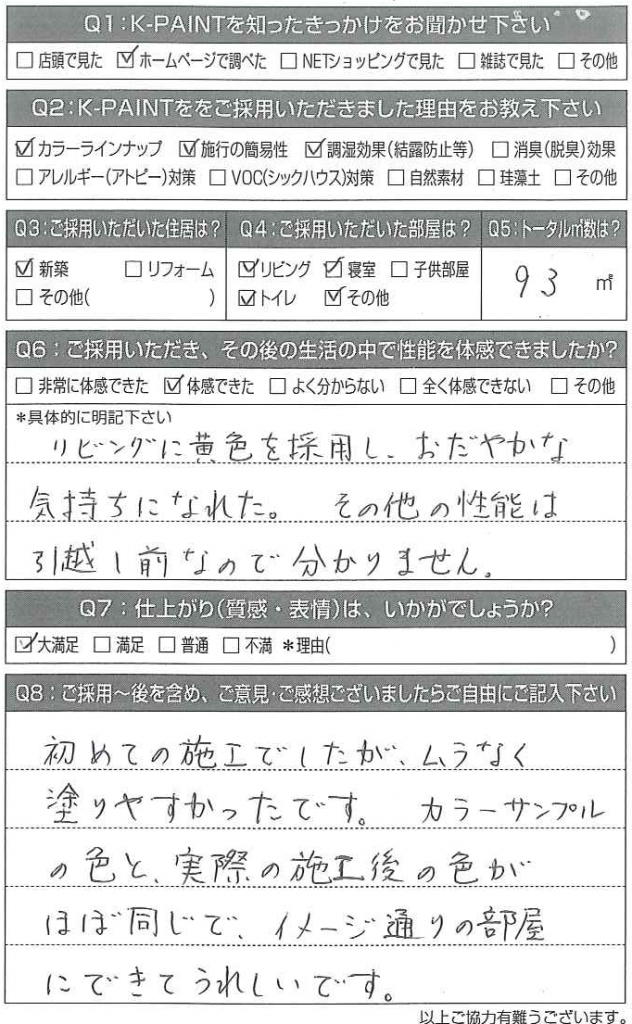 Q1:K-PAINTを知ったきっかけをお聞かせ下さい
□店頭で見た ☑ホームページで調べた □NETショッピングで見た □雑誌で見た □その他
Q2:K-PAINTををご採用いただきました理由をお教え下さい
☑カラーラインナップ ☑施行の簡易性 ☑調湿効果(結露防止等) □消臭(脱臭)効果
□アレルギー(アトピー)対策 □VOC(シックハウス)対策 □自然素材 □珪藻土 □その他
Q3:ご採用いただいた住居は? Q4:ご採用いただいた部屋は? Q5:トータル㎡数は?
☑新築 □リフォーム ☑リビング ☑寝室 □子供部屋 93 ㎡
□その他( ) ☑トイレ ☑その他
Q6:ご採用いただき、その後の生活の中で性能を体感できましたか?
□非常に体感できた ☑体感できた □よく分からない □全く体感できない □その他
*具体的に明記下さい
リビングに黄色を採用し、おだやかな
気持ちになれた。 その他の性能は
引越し前なので分かりません。
Q7:仕上がり(質感・表情)は、いかがでしょうか?
☑大満足 □満足 □普通 □不満 *理由( )
Q8:ご採用〜後を含め、ご意見・ご感想ございましたらご自由にご記入下さい
初めての施工でしたが、ムラなく
塗りやすかったです。 カラーサンプル
の色と、実際の施工後の色が
ほぼ同じで、イメージ通りの部屋
にできてうれしいです。
以上ご協力有難うございます。